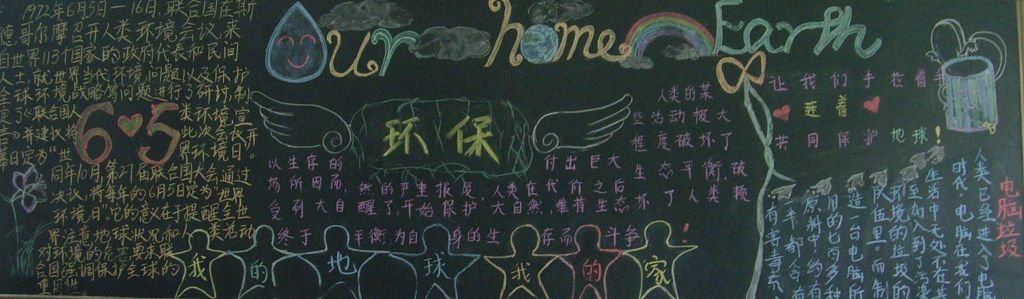 1972年6月5日—16日,联合国在斯
德哥尔摩召开人类环境会议,来
自世界113个国家的政府代表和民间
人士,就世界当代环境问题以及保护
全球环境战略等问题进行了研讨,制
定了联合国人类环境宣
6♥5
言,并建议将此次会议开
幕日定为“世界环境日”。
同年10月,第27届联合国大会通过
决议,将每年的6月5日定为“世界
环境日”,它的意义在于提醒全世
界注意地球状况和人类活动
对环境的危害,要求联
合国强调保护全球的
重要性
Our home Earth
环保
人类的某
些活动极大
程度破坏了
生态平衡,破
坏了人类赖
以生存的
场所,因而付出巨大
受到大自然的严重报复,人类在代价之后
终于醒了,开始保护大自然,维持生态
平衡,为自身的生存而斗争!
让我们手牵着手
连着
共同保护地球!
我的地球我的家
电脑垃圾
人类已经进入了电脑
时代,电脑在我们
生活中无处不在,甚
至向入到了污染
环境的垃圾的
队伍里,而制
造一台电脑所
用的七百多种
原料中,约有
一半都含
有毒